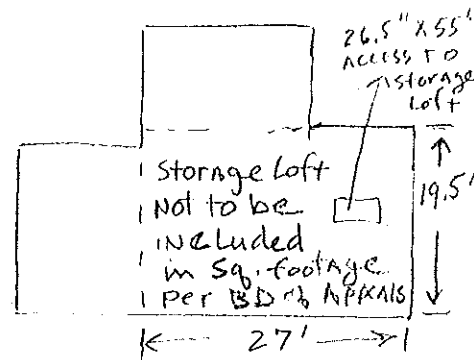 26.5" X 55"
ACCESS TO
storage
Loft
Storage Loft
Not to be
included
in Sq. footage
per BD of Appeals
19.5'
27'